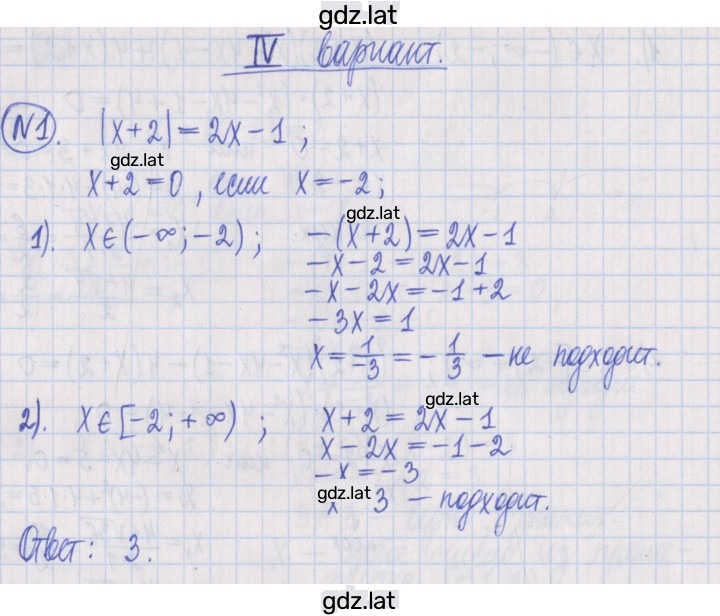 gdz.lat
IV вариант.
№1. |x+2|=2x-1;
gdz.lat
x+2=0, если x=-2;
gdz.lat
1). x∈(-∞;-2); -(x+2)=2x-1
-x-2=2x-1
-x-2x=-1+2
-3x=1
x=1/-3=-1/3 - не подходит.
gdz.lat
2). x∈[-2;+∞); x+2=2x-1
x-2x=-1-2
-x=-3
gdz.lat
x 3 - подходит.
Ответ: 3.
gdz.lat